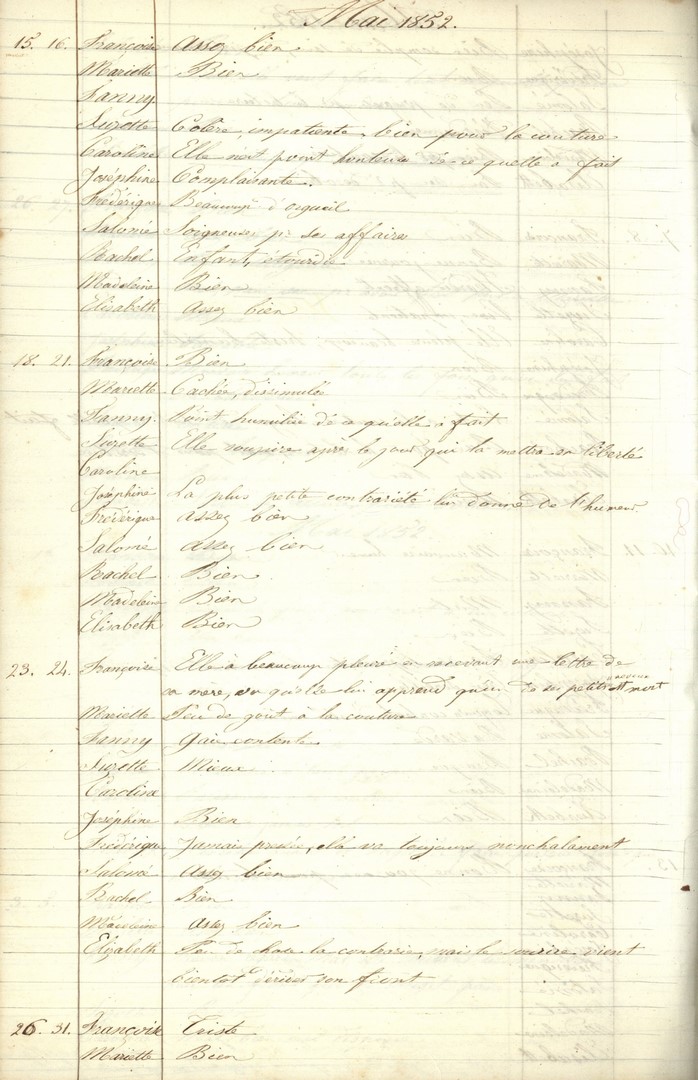 Mai 1852.
15. 16. Françoise Assez bien
Mariette Bien
Fanny.
Suzette Colère, impatiente, bien pour la couture
Caroline Elle n'est point honteuse de ce quelle a fait
Joséphine Complaisante.
Frédérique Beaucoup d'orgueil
Salomé Soigneuse pr ses affaires
Rachel Enfant, étourdie
Madelaine Bien
Elisabeth Assez bien
18. 21. Françoise Bien
Mariette Cachée, dissimulée
Fanny. Point humiliée de ce qu'elle a fait
Suzette Elle soupire après le jour qui la mettra en liberté
Caroline
Joséphine La plus petite contrariété lui donne de l'humeur
Frédérique Assez bien
Salomé Assez bien
Rachel Bien
Madelein Bien
Elisabeth Bien
23. 24. Françoise Elle à beaucoup pleuré en recevant une lettre de
sa mère, qu'elle lui apprend qu'un de ses petits neveux est mort
Mariette Peu de goût à la couture
Fanny Gaie contente
Suzette Mieux
Caroline
Joséphine Bien
Frédériqu Jamais pressée, elle va toujours nonchalament
Salomé Assez bien
Rachel Bien
Madelaine Assez bien
Elisabeth Peu de chose la contrarie, mais le sourire vient
bientôt dérider son front
26. 31. Françoise Triste
Mariette Bien